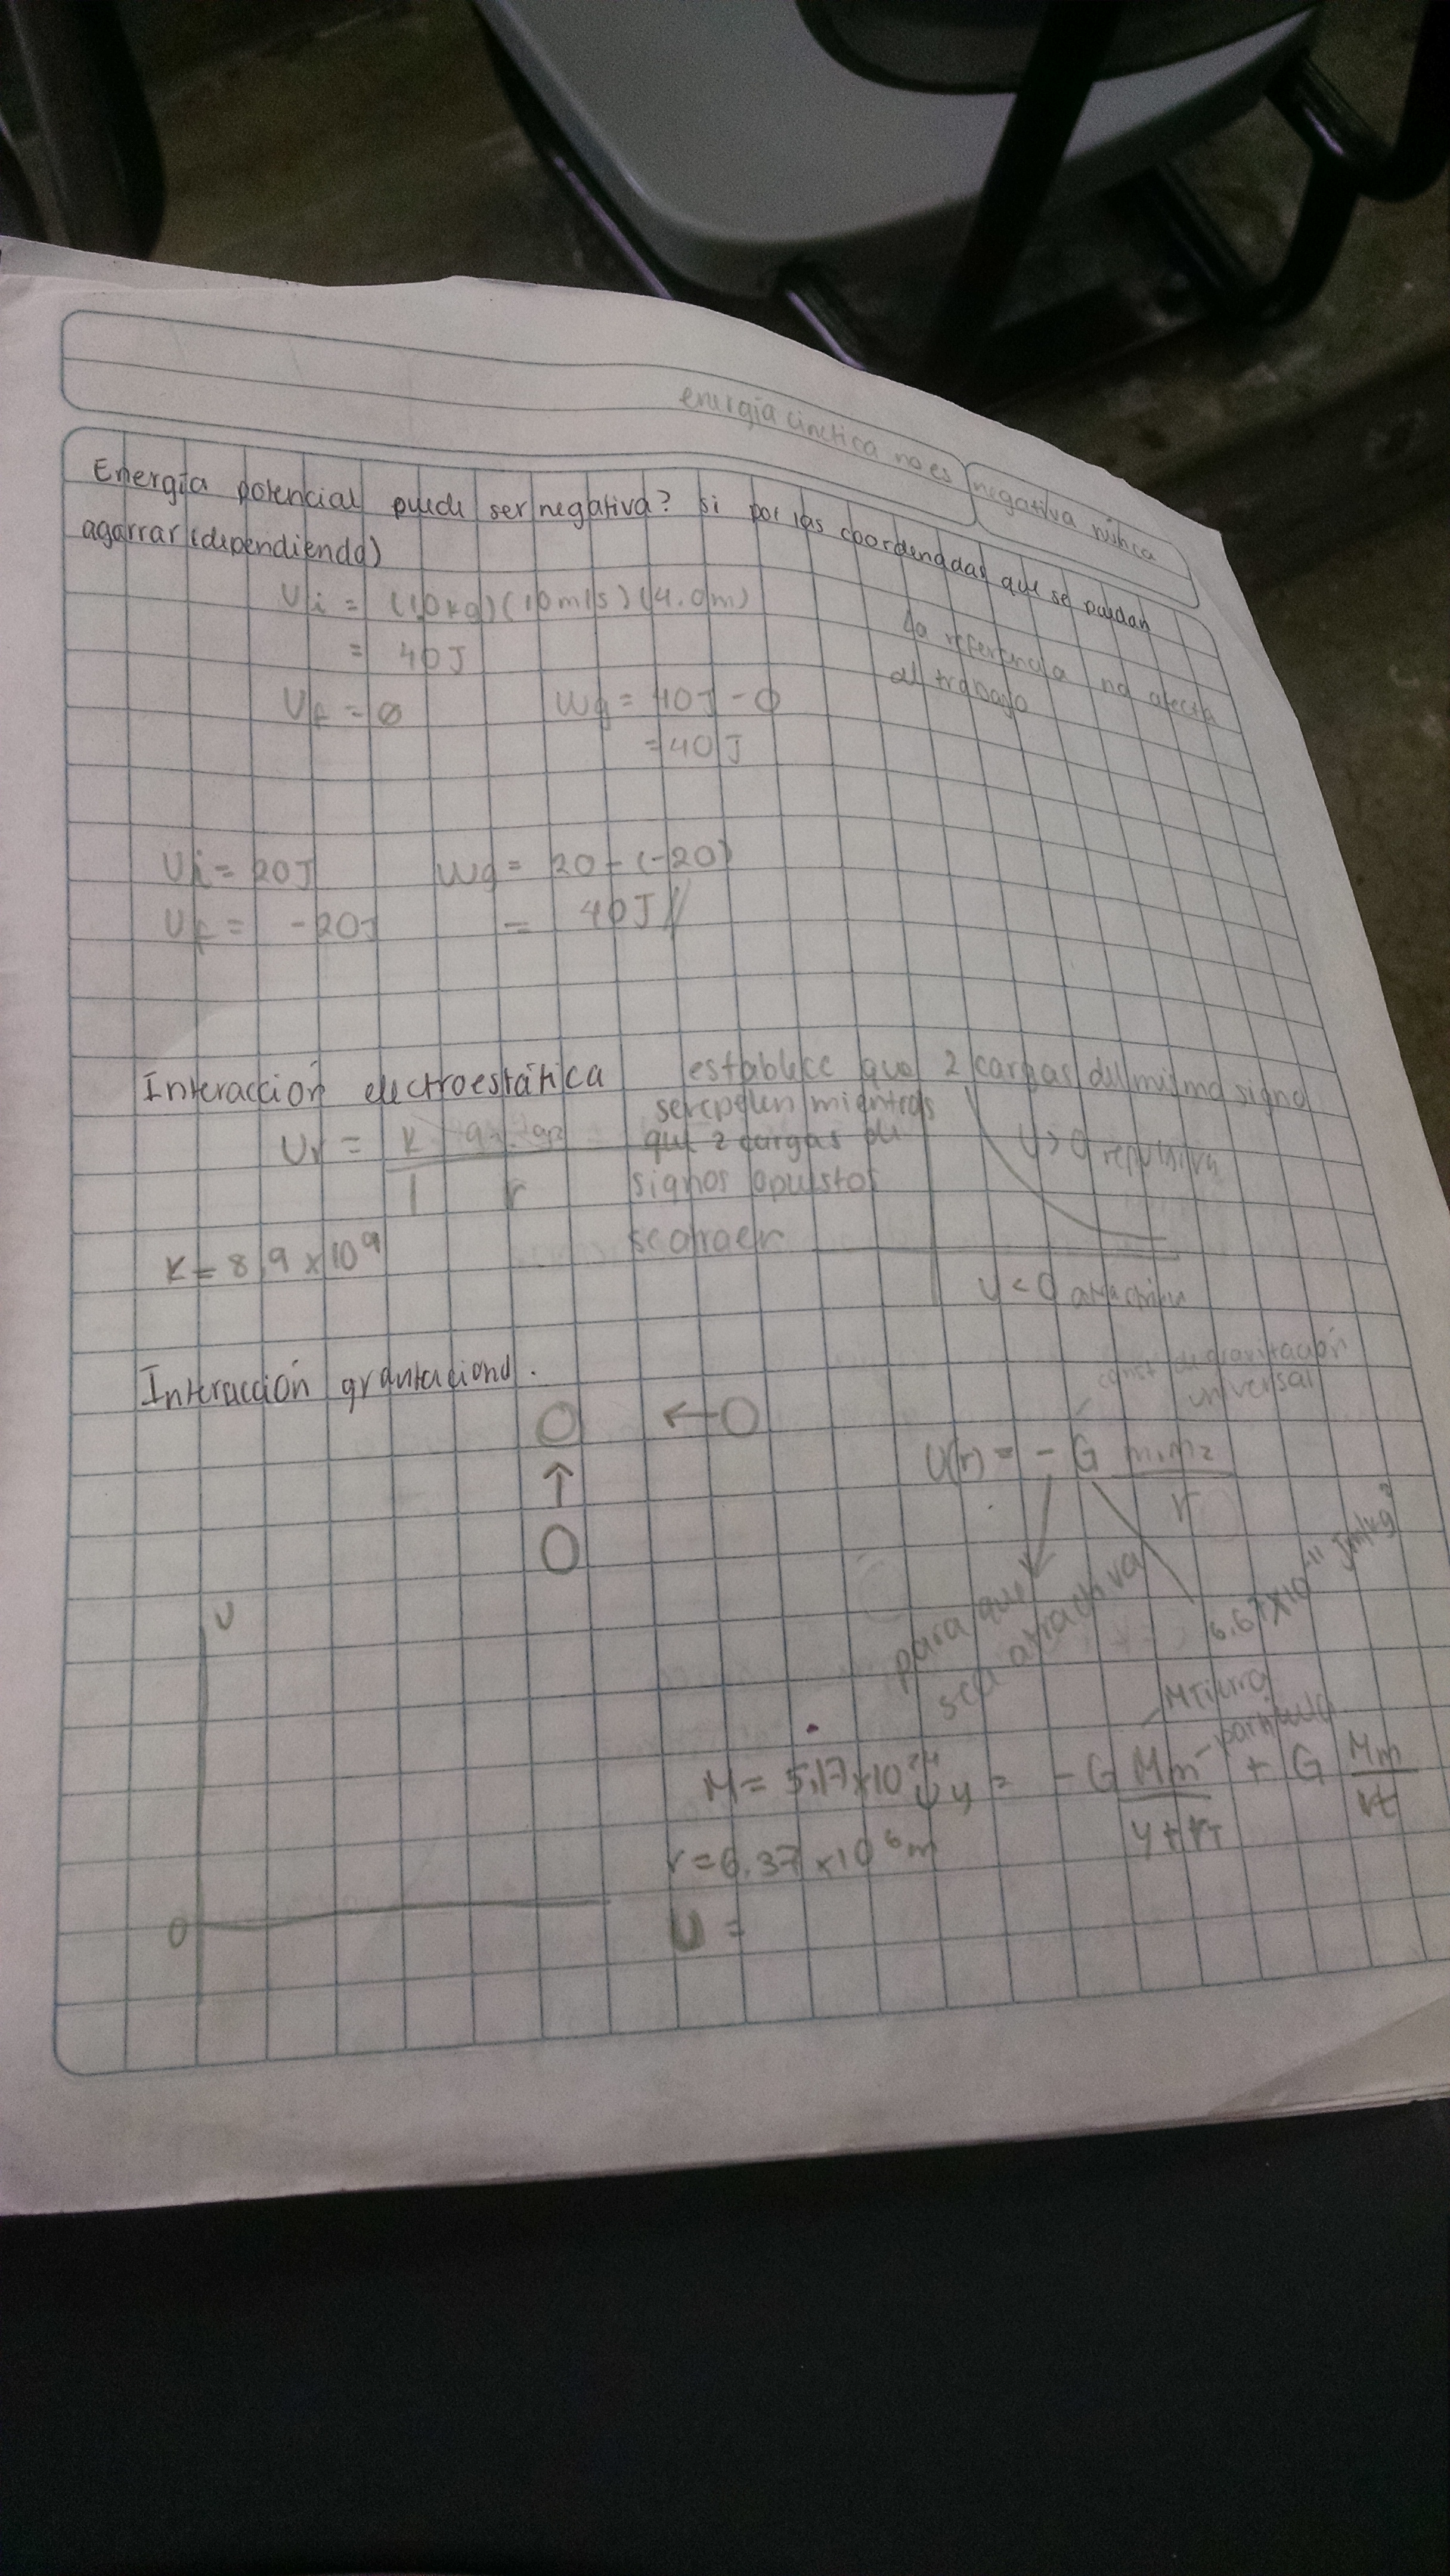 energía cinética no es negativa nunca
Energía potencial puede ser negativa? si por las coordenadas que se puedan
agarrar (dependiendo)
Ui = (10kg)(10m/s)(4.0m)
= 40J
la referencia no afecta
al trabajo
Uf = 0 Wg = 40J - 0
= 40J
Ui = 20J Wg = 20 - (-20)
Uf = -20J = 40J //
Interacción electroestática establece que 2 cargas del mismo signo
se repelen mientras
Ur = K q1 q2 / r que 2 cargas de
signos opuestos
U > 0 repulsiva
K = 8.9 x 10^9
U < 0 atractiva
Interacción
const de gravitación
universal
U(r) = - G m1 m2 / r
para que
sea atractiva
6.67x10^-11 Jm/kg^2
U
M Tierra
partícula
M = 5.17x10^24
y = - G Mm / y + rT + G Mm / rt
r = 6.37 x 10^6 m
0
U =